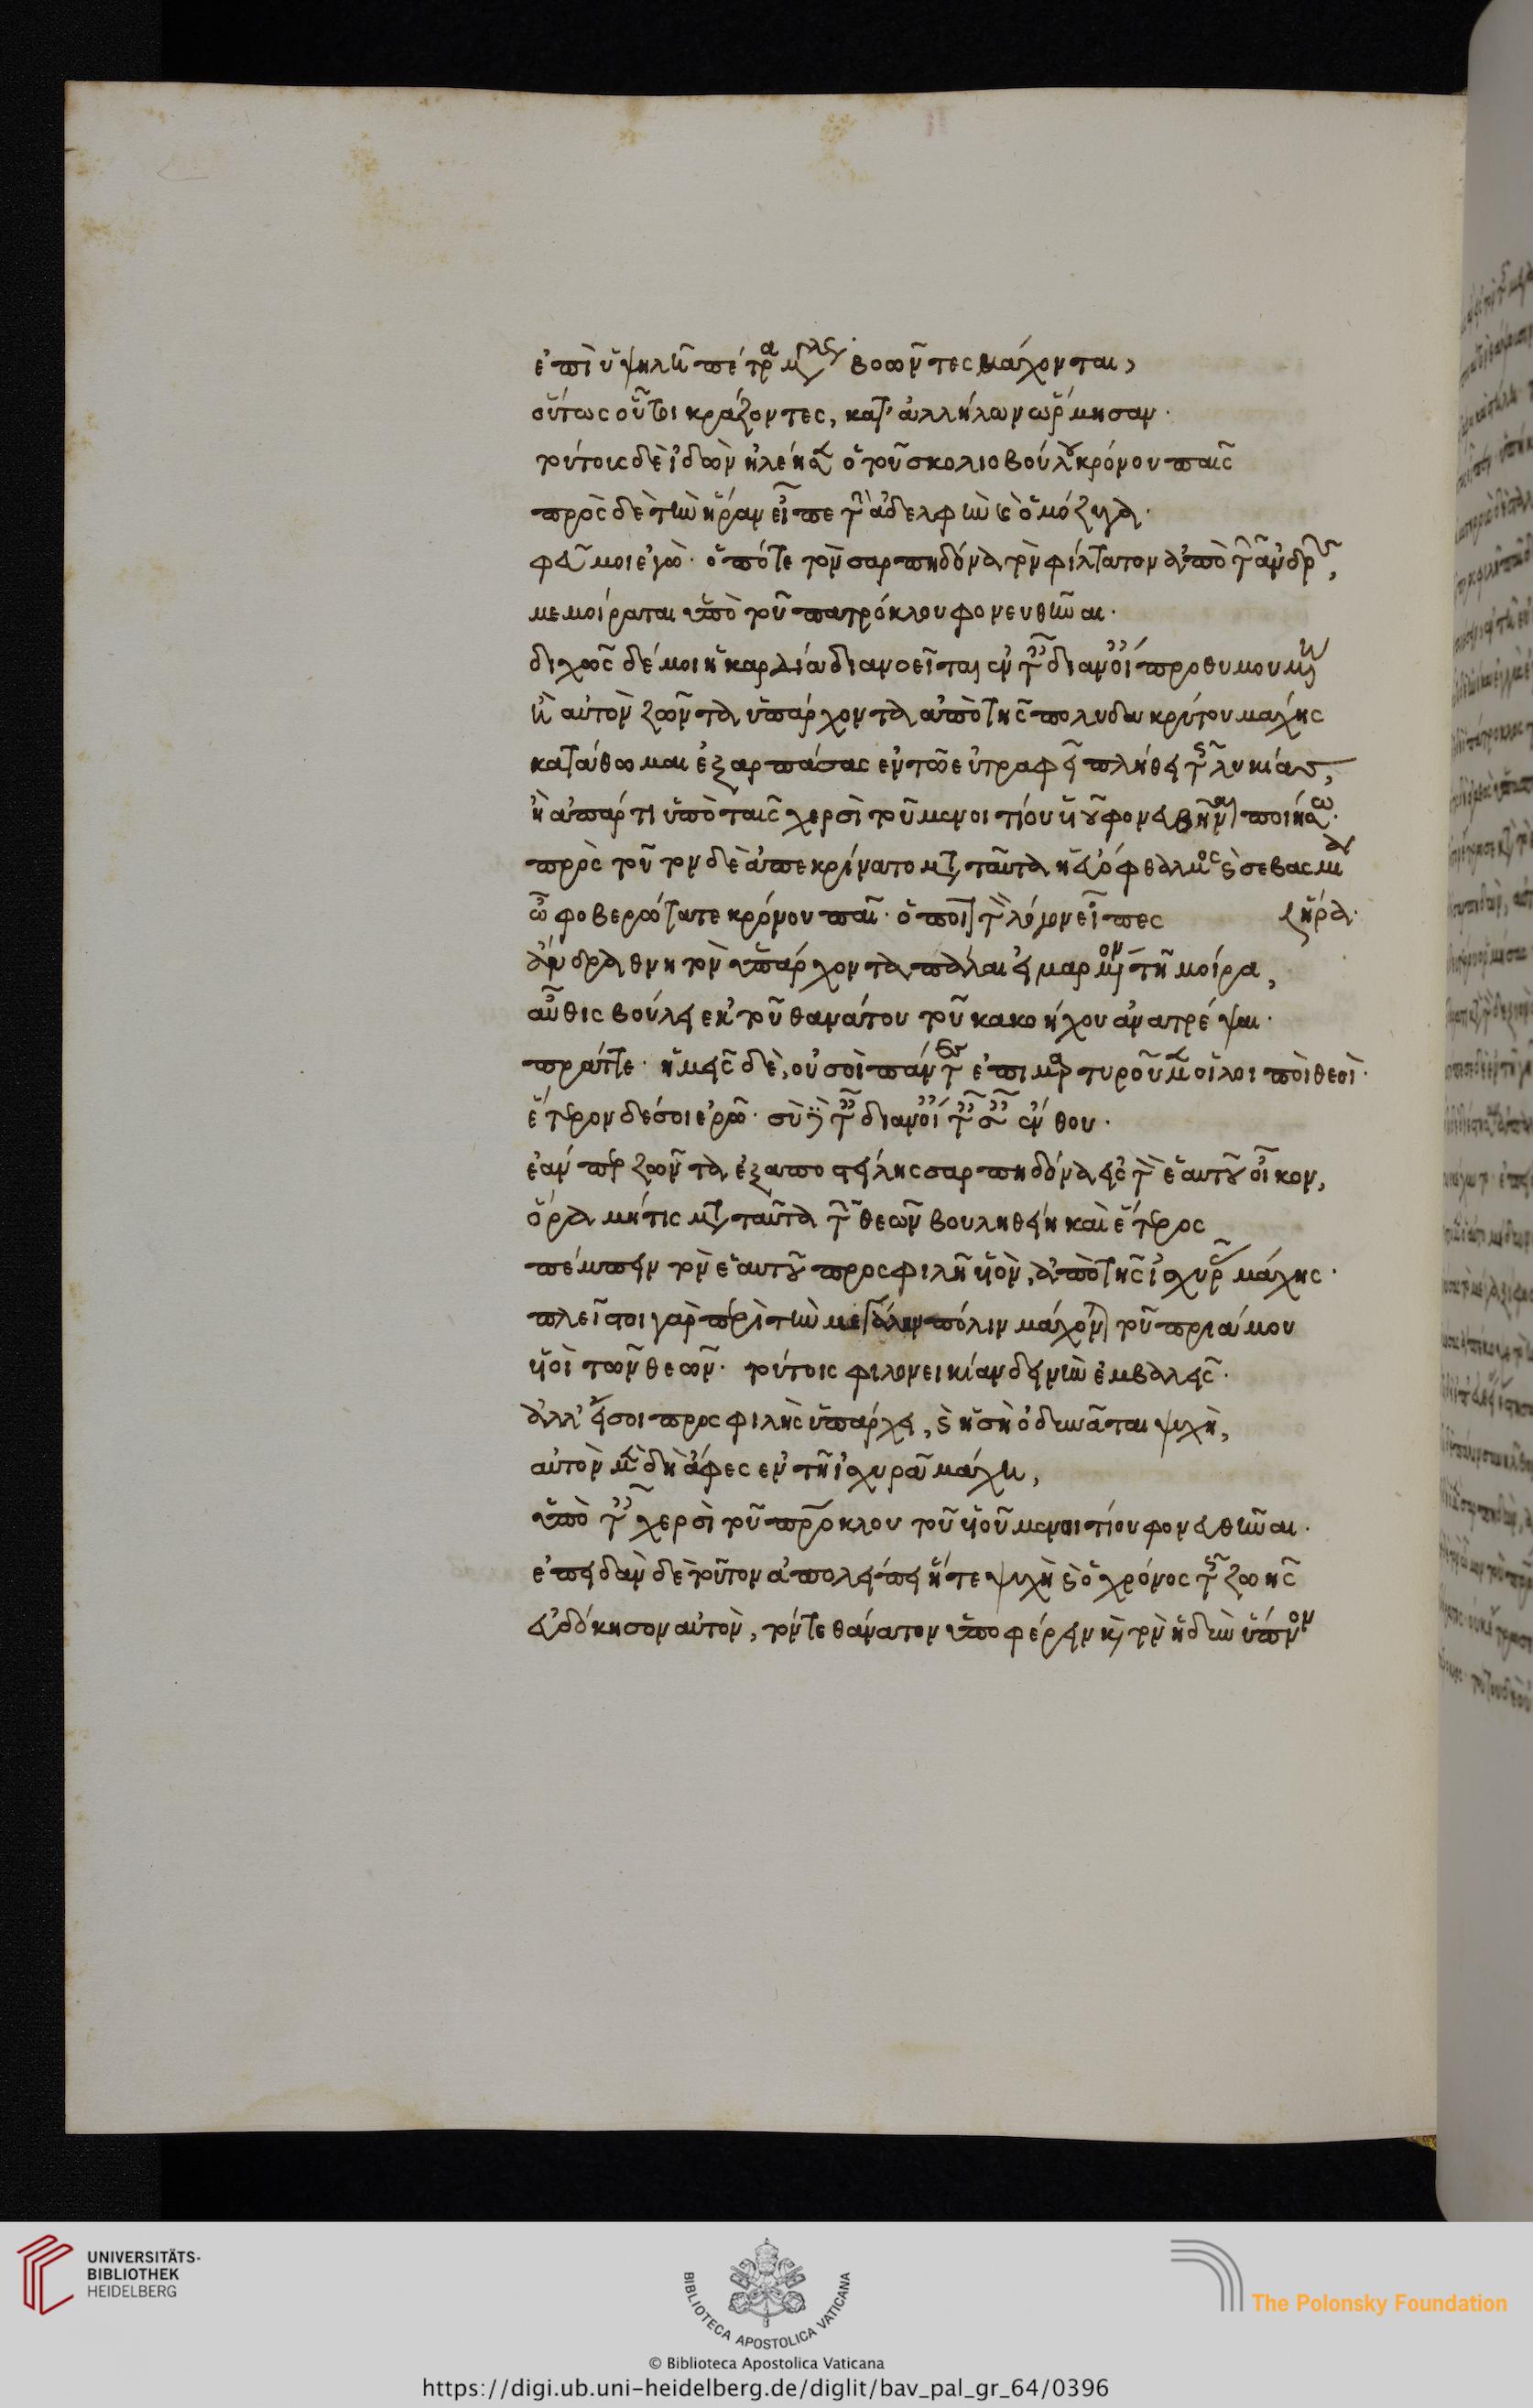 ἐπὶ ὑψηλῆ πέτρα μεγάλως βοῶντες μάχονται,
οὕτως οὗτοι κράζοντες, κατ' ἀλλήλων ὥρμησαν.
τούτοις δὲ ἰδὼν ἠλέησεν ὁ τοῦ σκολιοβούλου κρόνου παῖς
πρὸς δὲ τὴν ἥραν εἶπε τὴν ἀδελφὴν καὶ ὁμόζυγα.
φεῦ μοι ἐγὼ. ὁπότε τὸν σαρπηδόνα τὸν φίλτατον ἀπὸ τῶν ἀνδρῶν,
μεμοίραται ὑπὸ τοῦ πατρόκλου φονευθῆναι.
διχῶς δέ μοι ἡ καρδία διανοεῖται ἐν ταῖς διανοίαις προθυμουμένη
ἢ αὐτὸν ζῶντα ὑπάρχοντα ἀπὸ τῆς πολυδακρύτου μάχης
καταθωμαι ἐξαρπάσας ἐν τῶ εὐτραφεῖ πλήθει τῆς λυκίας,
ἢ ἀπάρτι ὑπὸ ταῖς χερσὶ τοῦ μενοιτίου υἱοῦ φονευθῆναι ποιήσω.
πρὸς τοῦτον δὲ ἀπεκρίνατο μετὰ ταῦτα ἡ εὐόφθαλμος καὶ σεβασμία
ἥρα.
ὦ φοβερώτατε κρόνου παῖ. ὁποῖον τὸν λόγον εἶπες
ἄνδρα θνητὸν ὑπάρχοντα πάλαι εἱμαρμένον τῆ μοίρα,
αὖθις βούλει ἐκ τοῦ θανάτου τοῦ κακοήχου ἀνατρέψαι.
πράττε. ἡμεῖς δὲ, οὐ σοὶ πάντες ἐπιμαρτυροῦμεν οἱ λοιποὶ θεοὶ.
ἕτερον δέ σοι ἐρῶ. σὺ δὲ ταῖς διανοίαις ταῖς σαῖς ἐνθου.
ἐάν περ ζῶντα ἐξαποστείλης σαρπηδόνα εἰς τὸν ἑαυτοῦ οἶκον,
ὅρα μήτις μετὰ ταῦτα τῶν θεῶν βουληθείη καὶ ἕτερος
πέμπειν τὸν ἑαυτοῦ προσφιλῆ υἱὸν, ἀπὸ τῆς ἰσχυρᾶς μάχης.
πλεῖστοι γὰρ περὶ τὴν μεγάλην πόλιν μάχονται τοῦ πριάμου
υἱοὶ τῶν θεῶν. τούτοις φιλονεικίαν δεινὴν ἐμβαλεῖς.
ἀλλ' εἴ σοι προσφιλὴς ὑπάρχει, καὶ ἡ σὴ ὀδυνᾶται ψυχὴ,
αὐτὸν μὲν δὴ ἄφες ἐν τῆ ἰσχυρᾶ μάχη,
ὑπὸ ταῖς χερσὶ τοῦ πατρόκλου τοῦ υἱοῦ μενοιτίου φονευθῆναι.
ἐπειδὰν δὲ τοῦτον ἀπολείπη ἥτε ψυχὴ καὶ ὁ χρόνος τῆς ζωῆς
εὐδόκησον αὐτὸν, τόν τε θάνατον ὑποφέρειν καὶ τὸν ἡδὺν ὕπνον
UNIVERSITÄTS-
BIBLIOTHEK
HEIDELBERG
BIBLIOTECA APOSTOLICA VATICANA
The Polonsky Foundation
© Biblioteca Apostolica Vaticana
https://digi.ub.uni-heidelberg.de/diglit/bav_pal_gr_64/0396